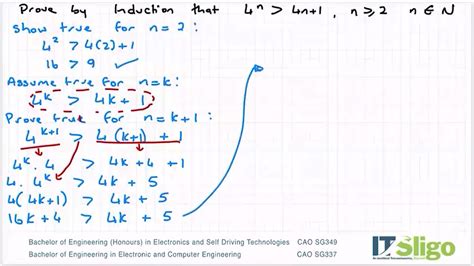 Prove by Induction that 4ⁿ > 4n+1, n ⩾ 2 n ∈ N
Show true for n = 2:
4² > 4(2)+1
16 > 9 ✓
Assume true for n=k:
4ᵏ > 4k + 1
Prove true for n=k+1:
4ᵏ⁺¹ > 4(k+1) + 1
4ᵏ.4 > 4k + 4 + 1
4.4ᵏ > 4k + 5
4(4k+1) > 4k + 5
16k+4 > 4k + 5
Bachelor of Engineering (Honours) in Electronics and Self Driving Technologies CAO SG349
Bachelor of Engineering in Electronic and Computer Engineering CAO SG337
IT Sligo